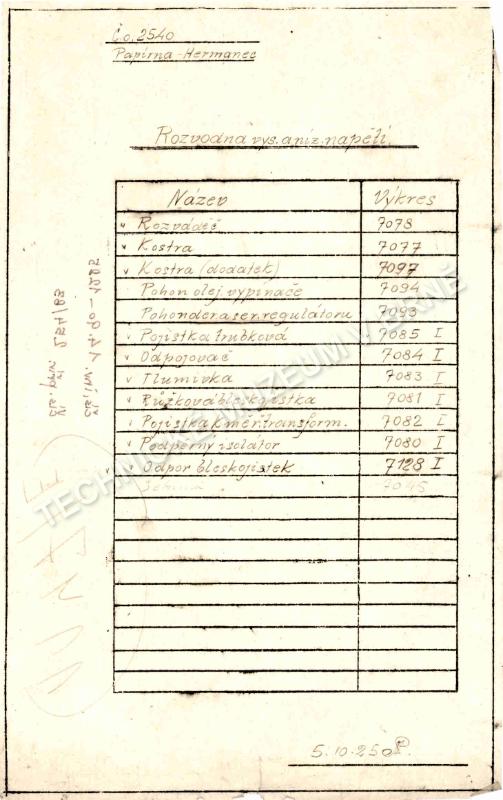 Č.o. 2540
Papírna-Hermanec
Rozvodna vys. a níz. napětí.
Název Výkres
v Rozvaděč 7078
v Kostra 7077
v Kostra (dodatek) 7097
Pohon olej vypínače 7094
Pohon der. a ser. regulátoru 7093
v Pojistka trubková 7085 I
v Odpojovač 7084 I
v Tlumivka 7083 I
v Růžková bleskojistka 7081 I
v Pojistka k měr. transform. 7082 I
v Podperný isolátor 7080 I
v v Odpor bleskojistek 7128 I
7045
5.10.25
TECHNICKÉ MUZEUM V BRNĚ